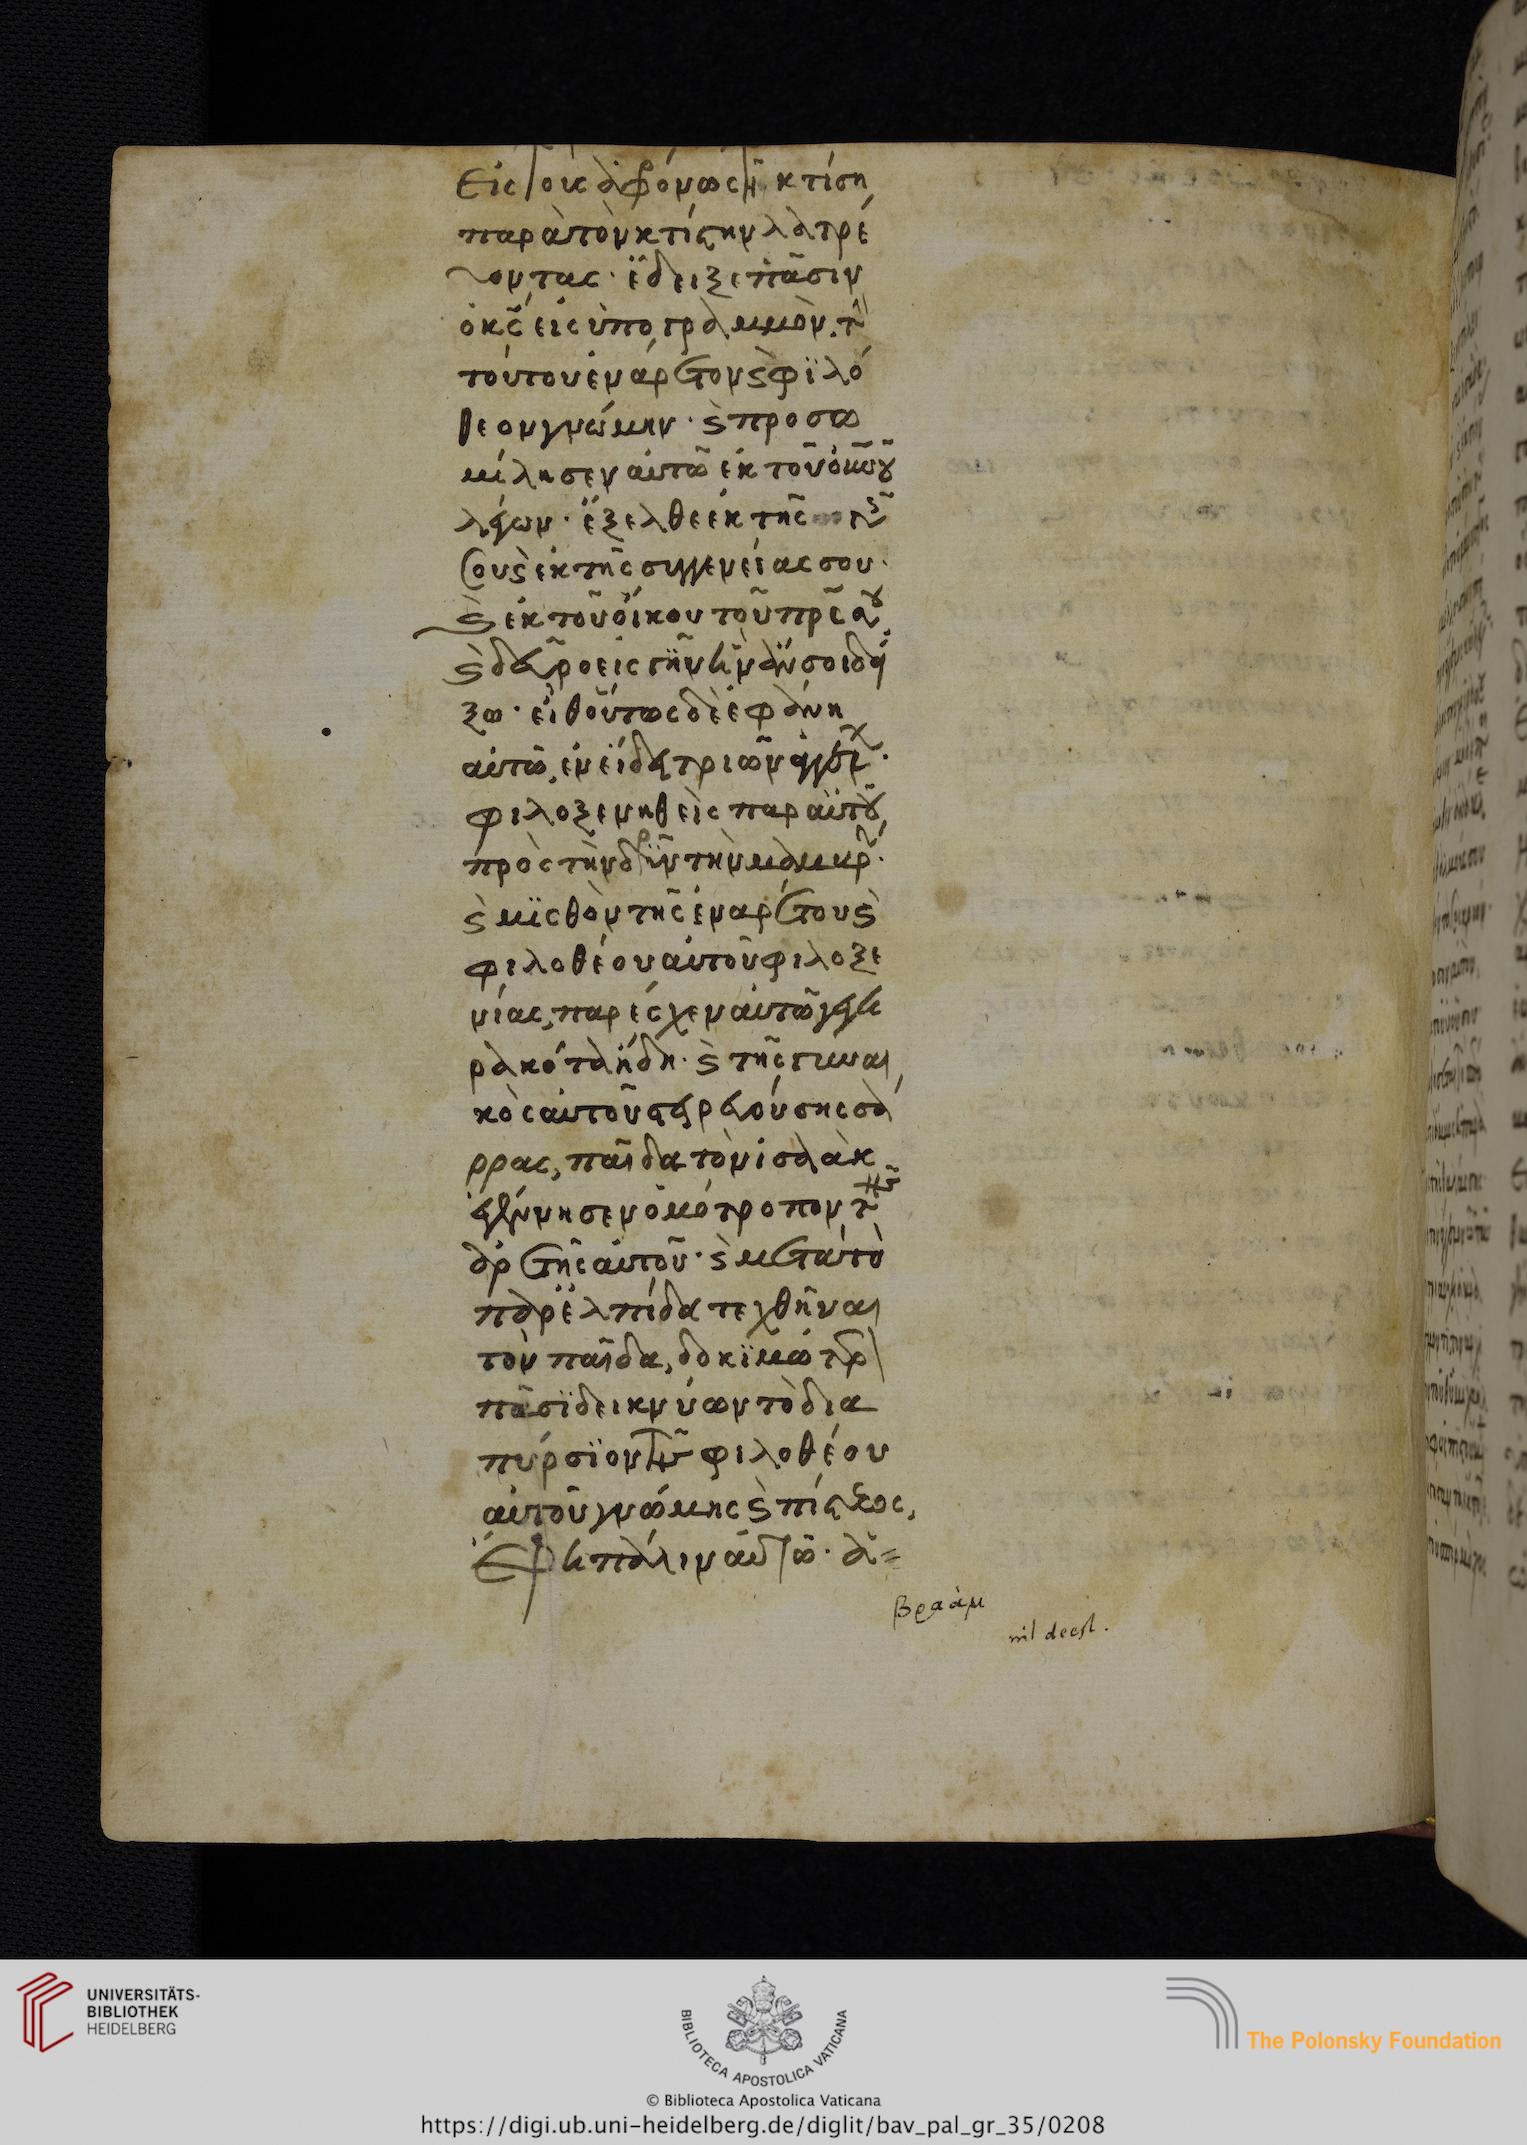 Εἰς τοὺς ἀφρόνως τῇ κτίσει
παρὰ τὸν κτίστην λατρεύ
οντας· ἔδειξε πᾶσιν
ὁ κς εἰς ὑπογραμμὸν τὴν
τούτου ἐνάρετον καὶ φιλό
θεον γνώμην· καὶ προσω
μίλησεν αὐτῶ ἐκ τοῦ οὐνοῦ
λέγων· ἔξελθε ἐκ τῆς γῆς
σου καὶ ἐκ τῆς συγγενείας σου·
καὶ ἐκ τοῦ οἴκου τοῦ πρς σου
καὶ δεῦρο εἰς γῆν ἣν ἄν σοι δεί
ξω· εἶθ οὕτως δὲ ἐφάνη
αὐτῶ, ἐν εἴδει τριῶν ἀγγέλων·
φιλοξενηθεὶς παρ αὐτοῦ
πρὸς τὴν δρῦν τὴν μαμβρῆ·
καὶ μισθὸν τῆς ἐναρέτου καὶ
φιλοθέου αὐτοῦ φιλοξε
νίας, παρέσχεν αὐτῶ γεγη
ρακότα ἤδη· καὶ τῆς γυναι
κὸς αὐτοῦ στειρευούσης σά
ρρας, παῖδα τὸν ἰσαὰκ
γεννήσεν ὁμότροπον τῆς
ἀρετῆς αὐτοῦ· καὶ μετὰ τὸ
παρ ἐλπίδα τεχθῆναι
τὸν παῖδα, δοκιμώτερον
πᾶσι δεικνύων τὸ δια
πύρσιον τῆς φιλοθέου
αὐτοῦ γνώμης καὶ πίστεως,
ἔφη πάλιν αὐτῶ· ἀ=
βραάμ
nil deest.
UNIVERSITÄTS-
BIBLIOTHEK
HEIDELBERG
BIBLIOTECA APOSTOLICA VATICANA
The Polonsky Foundation
© Biblioteca Apostolica Vaticana
https://digi.ub.uni-heidelberg.de/diglit/bav_pal_gr_35/0208